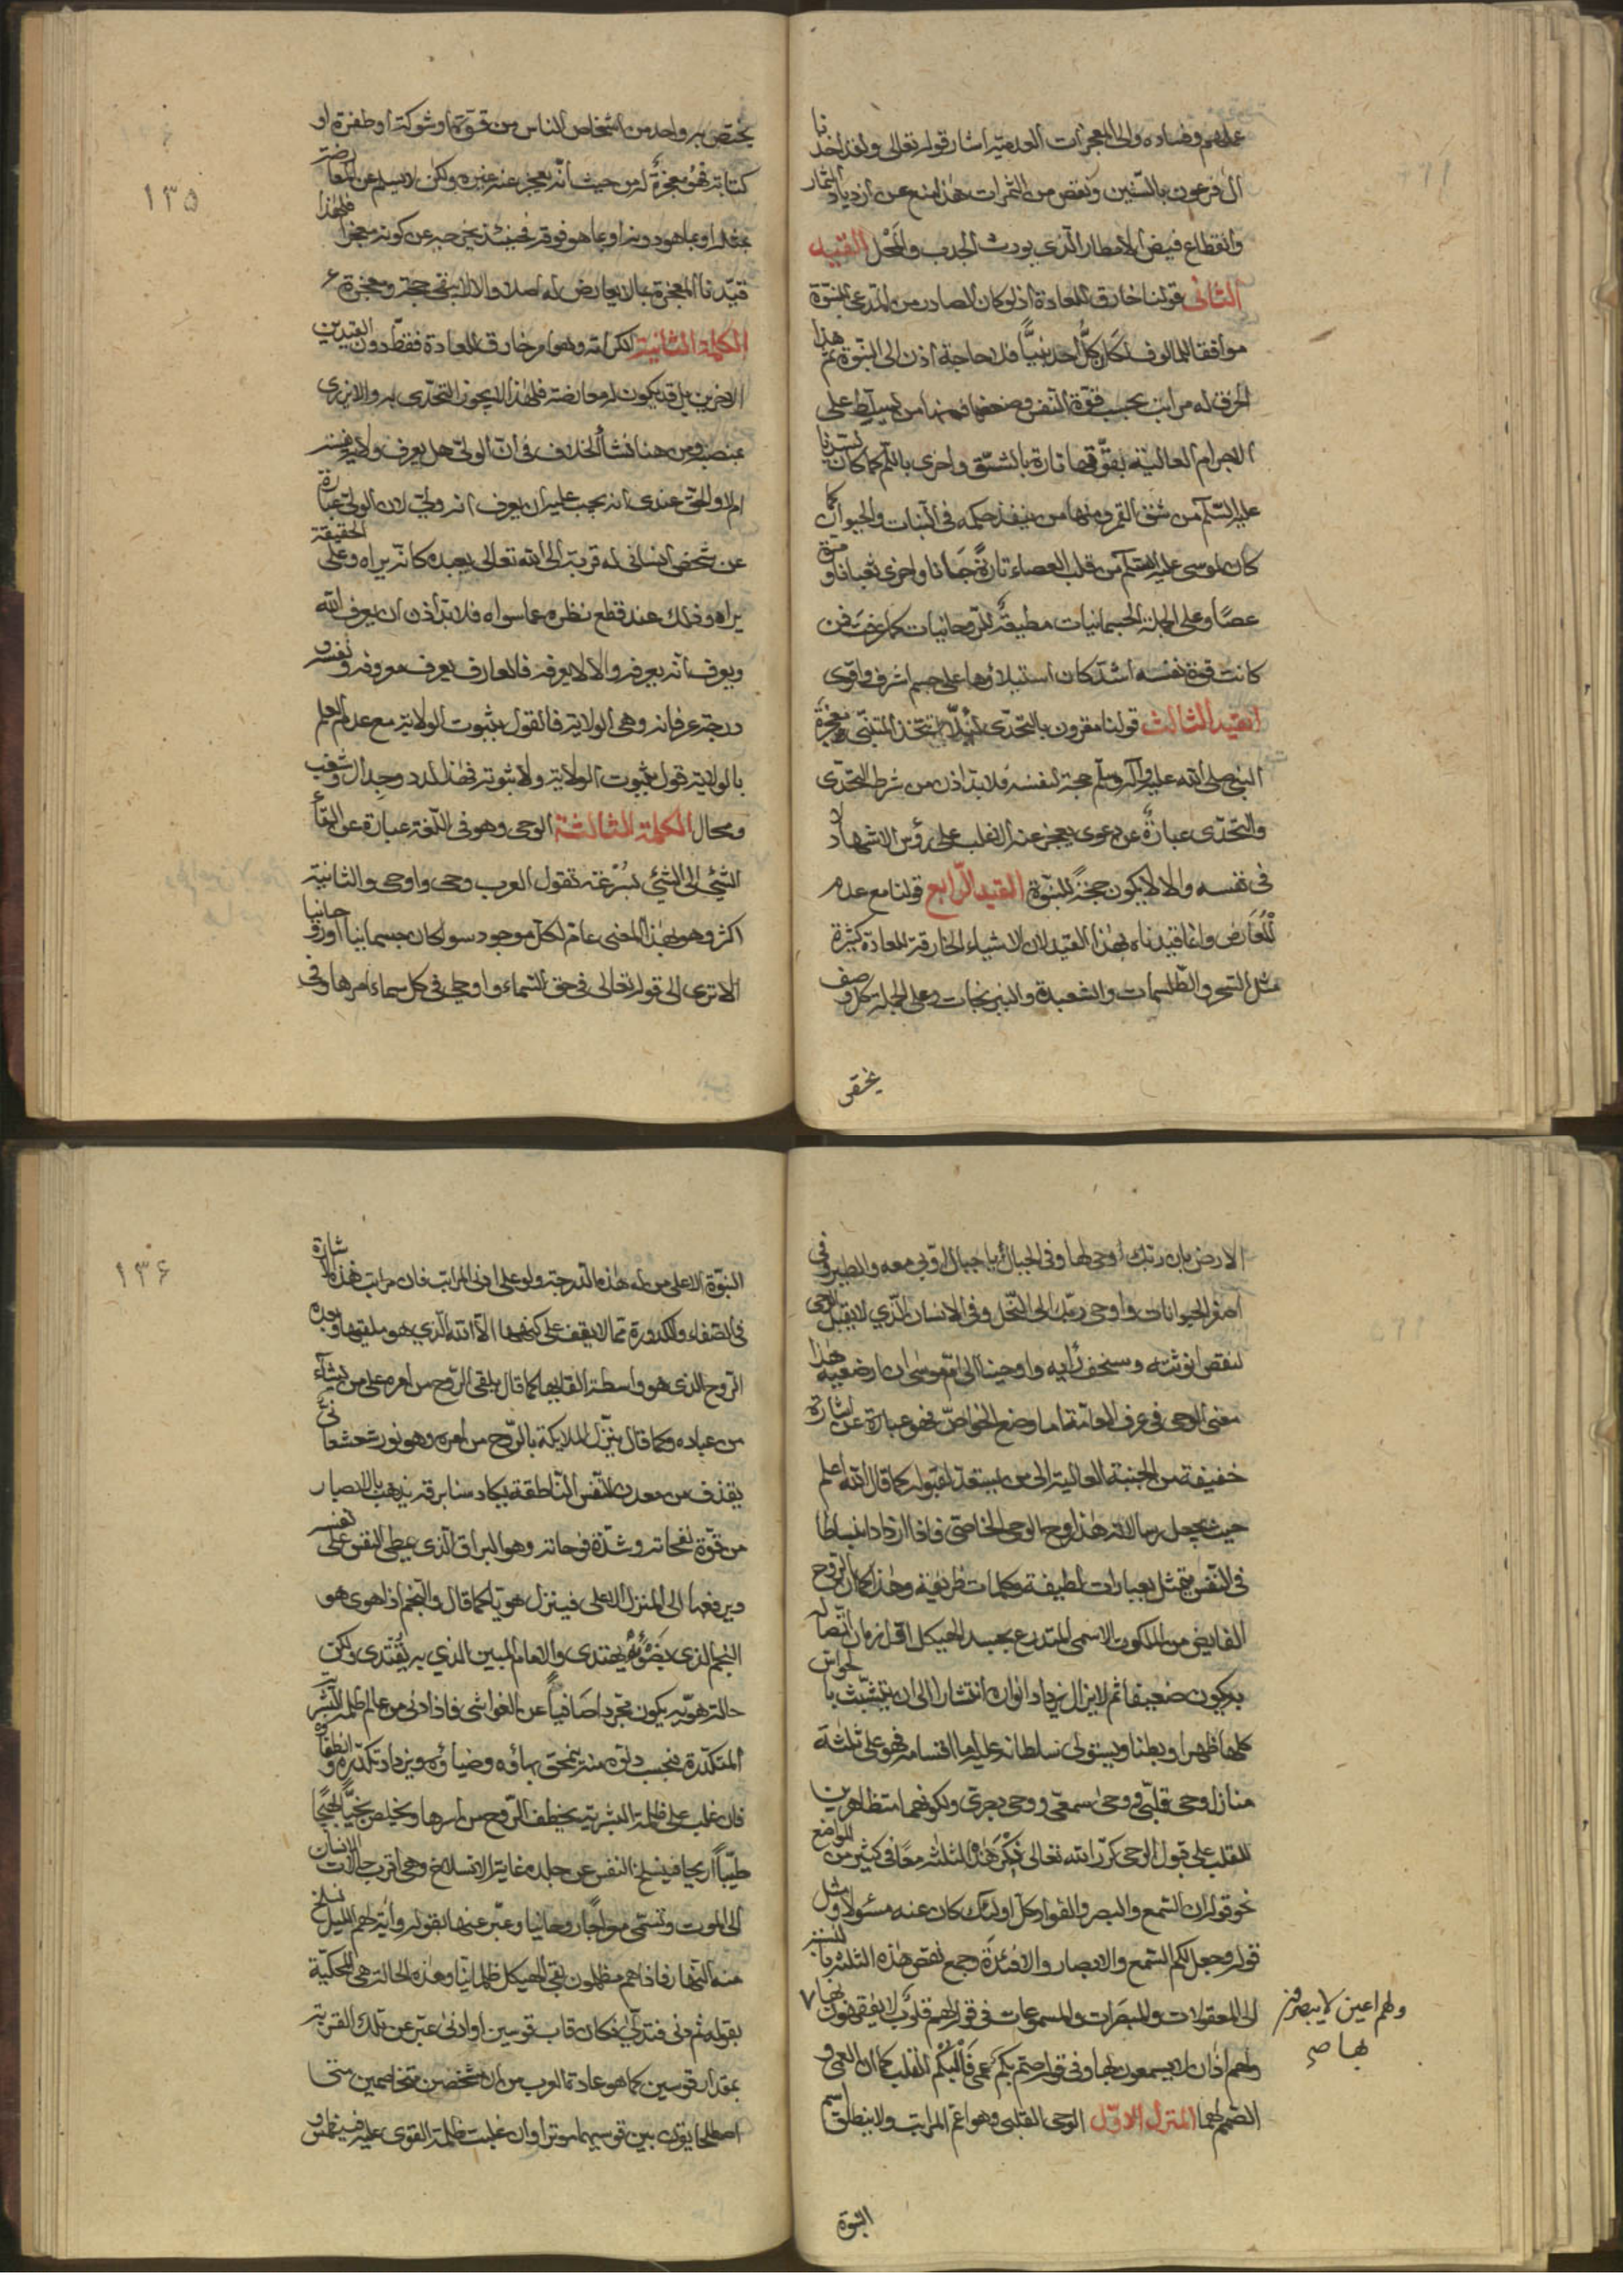 عملهم وفساده والى المعجزات العدمية اشار قوله تعالى ولقد اخذنا
آل فرعون بالسنين ونقص من الثمرات هذا منع عن ازدياد الثمار
وانقطاع فيض الامطار الذى يورث الجدب والمحل القيد
الثانى قولنا خارق للعادة اذ لو كان الصادر من المدعى للنبوة
موافقا للمالوف لكان كل احد نبيا فلا حاجة اذن الى النبوة ثم هذا
الخرق له مراتب بحسب قوة النفس وضعفها فمنها من يسلط على
الاجرام العالية بقوتها تارة بالشق واخرى باللم كما كان لنبينا
عليه السلام من شق القمر ومنها من ينفذ حكمه فى النبات والحيوان كما
كان لموسى عليه السلام من قلب العصاء تارة جانا واخرى ثعبانا و
عصا وعلى الجملة الجسمانيات مطيعة للروحانيات كما عرفت فمن
كانت قوة نفسه اشد كان استيلاؤها على جسم اشرف واقوى
القيد الثالث قولنا مقرون بالتحدى لئلا يتخذ المتنبى معجزة
النبى صلى الله عليه وآله وسلم حجة لنفسه فلا بد اذن من شرط التحدى
والتحدى عبارة عن دعوى يعجز عنه الاغلب على رؤس الاشهاد لا
فى نفسه والا لا يكون حجة للنبوة القيد الرابع قولنا مع عدم
المعارض وانما قيدناه بهذا القيد لان الاشياء الخارقة للعادة كثيرة
مثل السحر والطلسمات والشعبدة والنيرنجات وعلى الجملة كل وصف
يختص
١٣٥
يختص به واحد من اشخاص الناس من قوة او شوكة او ظفرة او
كتابة فهو معجزة له من حيث انه يعجز عنه غيره ولكن لا يسلم عن المعارضة
بمثله او بما هو دونه او بما هو فوقه فحينئذ يخرجه عن كونه معجزا فلهذا
قيدنا المعجزة بما لا يعارض له اصلا والا لا يبقى حجة ومعجزة
الكلمة الثانية الكرامة وهو امر خارق للعادة فقط دون القيدين
الاخرين بل قد يكون له معارضة فلهذا لا يجوز التحدى به والا يزرى
بمنصبه ومن هنا نشأ الخلاف فى ان الولى هل يعرف ولاية نفسه
ام لا والحق عندى انه يجب عليه ان يعرف انه ولى لان الولى عبارة
عن شخص انسانى له قربة الى الله تعالى يعبده كانه يراه وعلى الحقيقة
يراه وذلك عند قطع نظره عما سواه فلا بد اذن ان يعرف الله
ويعرف انه يعرفه والا لا يعرفه فالعارف يعرف معروفه ونفسه و
درجة عرفانه وهى الولاية فالقول بثبوت الولاية مع عدم العلم
بالولاية قول بثبوت الولاية ولا ثبوته فهذا لدد وجدال وشغب
ومحال الكلمة الثالثة الوحى وهو فى اللغة عبارة عن القاء
الشىء الى الشىء بسرعة تقول العرب وحى واوحى والثانية
اكثر وهو بهذا المعنى عام لكل موجود سوا كان جسمانيا او روحانيا
الا ترى الى قوله تعالى فى حق السماء واوحى فى كل سماء امرها وفى
الارض بان ربك اوحى لها وفى الجبال يا جبال اوبى معه والطير وفى
اصغر الحيوانات واوحى ربك الى النحل وفى الانسان الذى لا يقبل الوحى
لنقص انوثته وسخف رأيه واوحينا الى ام موسى ان ارضعيه هذا
معنى الوحى فى عرف العامة اما وضع الخواص فهو عبارة عن اشارة
خفيفة من الجنبة العالية الى من يستعد لقبوله كما قال الله اعلم
حيث يجعل رسالاته هذا روح الوحى الخاصى فاذا ازداد انبساطا
فى النفس يتمثل بعبارات لطيفة وكلمات ظريفة وهذا كما ان الروح
الفايض من الملكوت الاسمى المتدرع بجسد الهيكل اول زمان اتصاله
به يكون ضعيفا ثم لا يزال يزداد انواره انتشارا الى ان يتشبث بالحواس
كلها ظهرا وبطنا ويستولى سلطانه عليها اما اقسامه فهو على ثلثة
منازل وحى قلبى ووحى سمعى ووحى بصرى ولكونهما متظاهرين
للقلب على قبول الوحى كرر الله تعالى ذكر هذه الثلثة معا فى كثير من المواضع
نحو قوله ان السمع والبصر والفؤاد كل اولئك كان عنه مسئولا ومثل
قوله وجعل لكم السمع والابصار والافئدة وجمع نقص هذه الثلثة بالنسبة
الى المعقولات والمبصرات والمسموعات فى قوله لهم قلوب لا يفقهون بها ٧
ولهم اعين لا يبصرون
بها صح
ولهم اذان لا يسمعون بها وفى قوله صم بكم عمى فالبكم للقلب كما ان العمى و
الصمم لهما المنزل الاول الوحى القلبى وهو اعم المراتب ولا ينطلق اسم
النبوة
١٣۶
النبوة الا على من له هذه الدرجة ولو على ادنى المراتب فان مراتب هذه الاشارة
فى الصفاء والكدورة مما لا يقف على كنهها الا الله الذى هو ملقيها وبعده
الروح الذى هو واسطة القايها كما قال يلقى الروح من امره على من يشاء
من عباده وكما قال ينزل الملائكة بالروح من امره وهو نور شعشعانى
يقذف من معدن النفس الناطقة يكاد سنا برقه يذهب بالابصار
من قوة نفحاته وشدة فوحاته وهو البراق الذى يمطى النفس على نفسه
ويرفعها الى المنزل الاعلى فينزل هويا كما قال والنجم اذا هوى هو
النجم الذى بضوئه يهتدى والامام المبين الذى به يقتدى ولكن
حالة هويه يكون مجردا صافيا عن الغواشى فاذا دنى من عالم ظلمة البشرية
المتكدرة فبحسب دنوه منه ينمحق بهاؤه وضياؤه ويزداد تكدره وانطفاؤه
فان غلب على ظلمة البشرية يخطف الروح من اسرها ويخلص نجيا
طيبا اريحا فينسلخ النفس عن جلده غاية الانسلاخ وهى اقرب حالات الانسان
الى الموت وتسمى معراجا روحانيا وعبر عنها بقوله وآية لهم الليل نسلخ
منه النهار فاذا هم مظلمون بقى الهيكل ظلمانيا وهذه الحالة هى المحكية
بقوله ثم دنى فتدلى فكان قاب قوسين او ادنى عبر عن تلك القربة
بمقدار قوسين كما هو عادة العرب من ان شخصين متخاصمين متى
اصطلحا يوتران بين قوسيهما وترا وان غلبت ظلمة القوى عليه فينطمس و